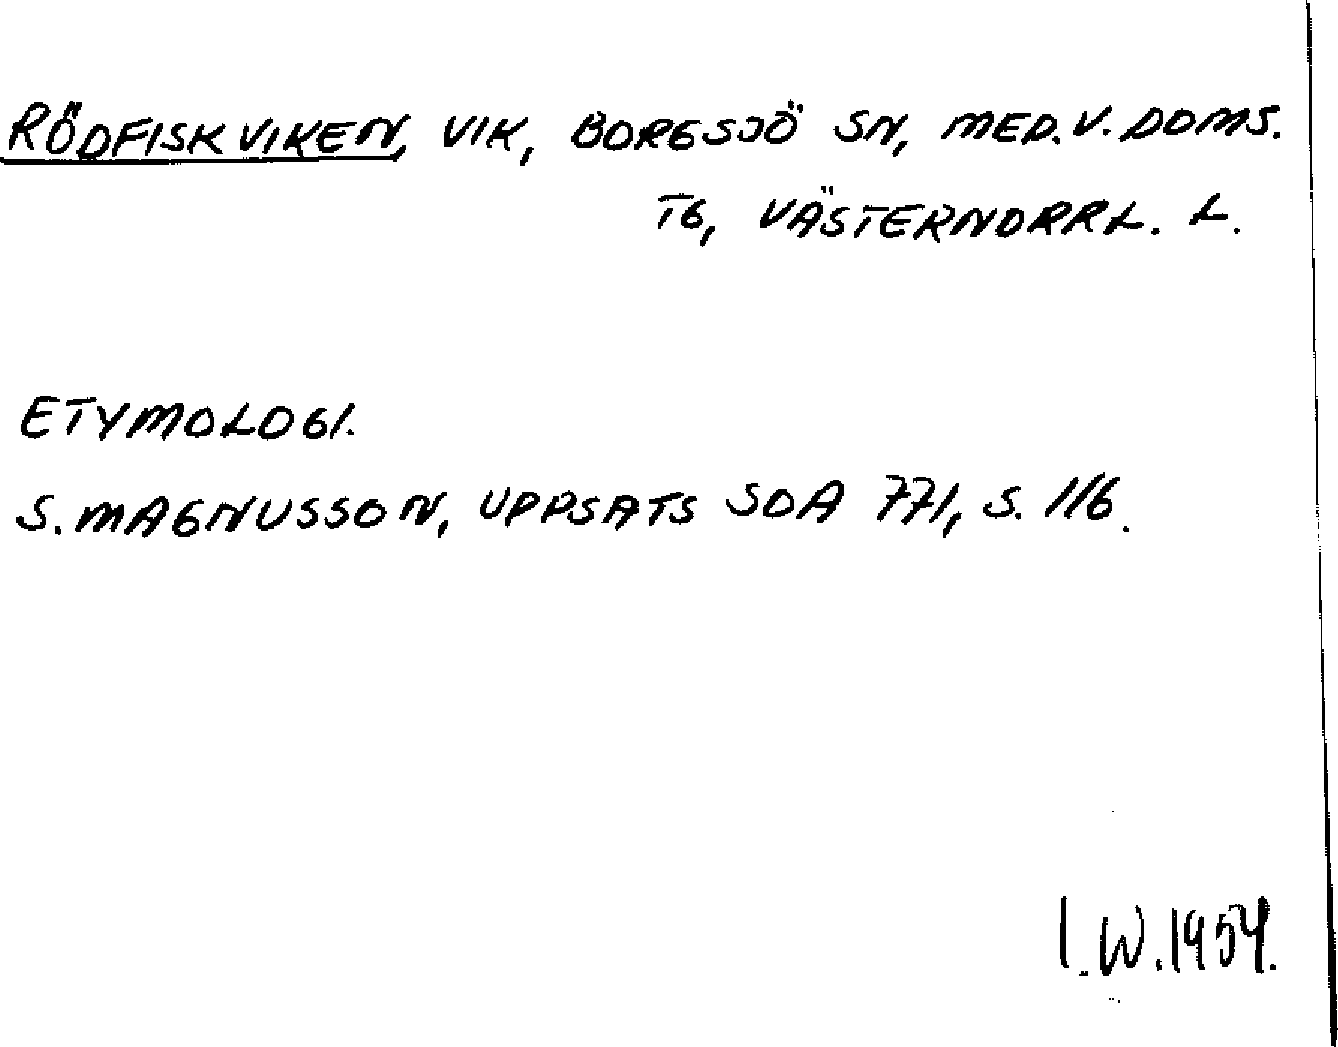 RÖDFISKVIKEN, VIK, BORGSJÖ SN, MED. V. DOMS.
TG, VÄSTERNORRL. L.
ETYMOLOGI.
S. MAGNUSSON, UPPSATS SOA 771, S. 116.
I. W. 1954.